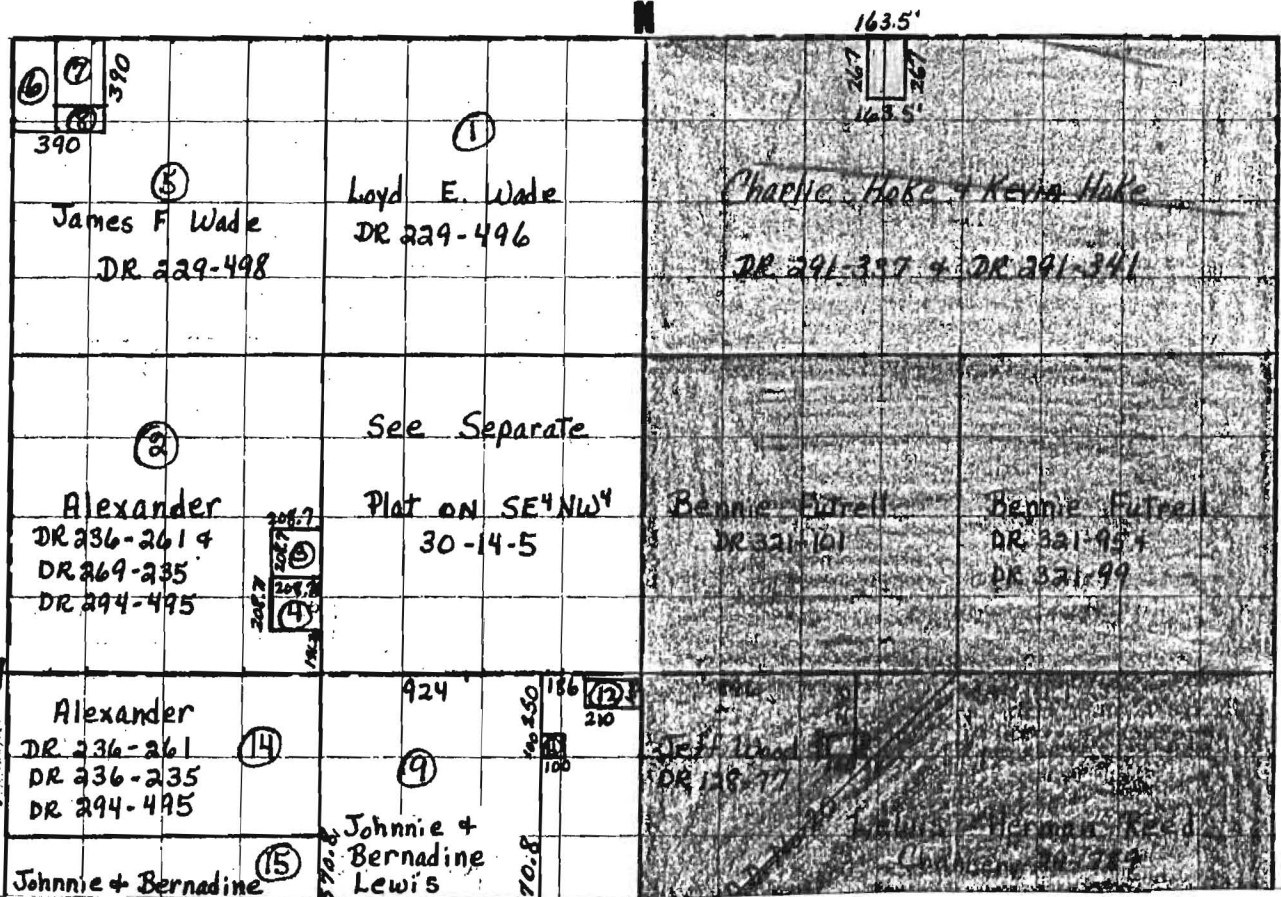 N
163.5'
267
267
163.5'
6
7
390
8
390
5
James F Wade
DR 229-498
1
Loyd E. Wade
DR 229-496
Charlie Hoke & Kevin Hoke
DR 291-337 & DR 291-341
2
Alexander
DR 236-261 &
DR 269-235
DR 294-495
208.7
208.7
3
208.7
208.7
4
See Separate
Plat on SE4NW4
30-14-5
Bennie Futrell
DR 321-101
Bennie Futrell
DR 321-95 &
DR 321-99
Alexander
DR 236-261
DR 236-235
DR 294-495
14
924
186
12
210
250
100
100
19
Johnnie &
Bernadine
Lewis
70.8
Jeff Wood
DR 128-77
Herman Reed
15
Johnnie & Bernadine